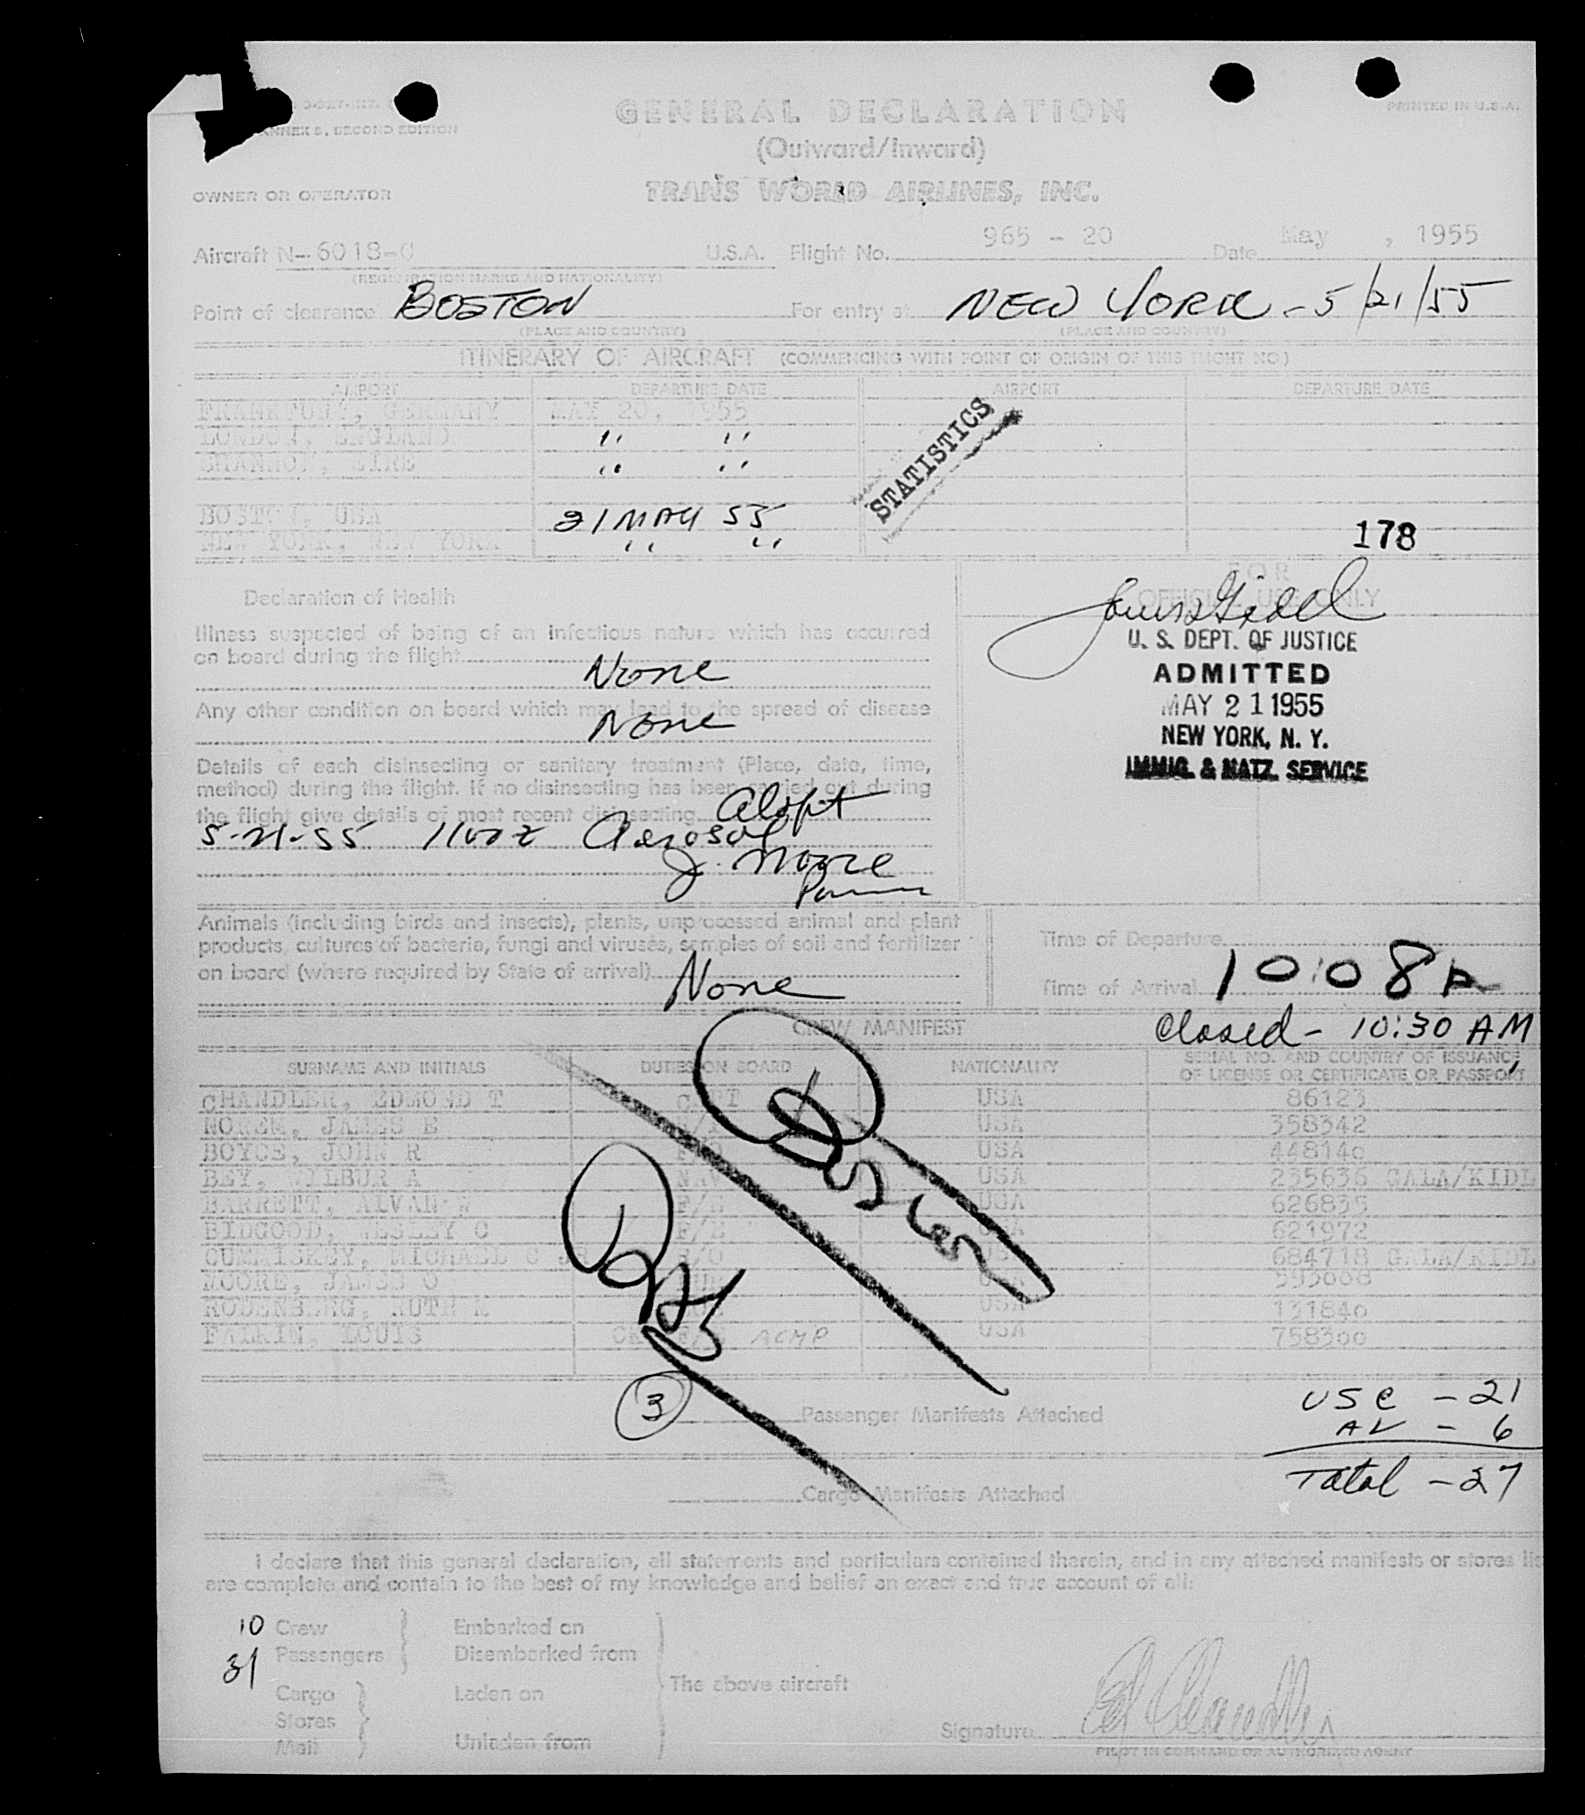 ANNEX 9, SECOND EDITION
PRINTED IN U.S.A.
GENERAL DECLARATION
(Outward/Inward)
OWNER OR OPERATOR
TRANS WORLD AIRLINES, INC.
Aircraft N-6018-C U.S.A. Flight No. 965 - 20 Date May , 1955
(REGISTRATION MARKS AND NATIONALITY)
Point of clearance BOSTON For entry at NEW YORK - 5/21/55
(PLACE AND COUNTRY) (PLACE AND COUNTRY)
ITINERARY OF AIRCRAFT (COMMENCING WITH POINT OF ORIGIN OF THIS FLIGHT NO.)
AIRPORT DEPARTURE DATE AIRPORT DEPARTURE DATE
FRANKFURT, GERMANY MAY 20, 1955
LONDON, ENGLAND " "
SHANNON, EIRE " "
STATISTICS
BOSTON, USA 21 MAY 55
NEW YORK, NEW YORK " "
178
FOR
OFFICIAL USE ONLY
U. S. DEPT. OF JUSTICE
ADMITTED
MAY 21 1955
NEW YORK, N. Y.
IMMIG. & NATZ. SERVICE
Declaration of Health
Illness suspected of being of an infectious nature which has occurred
on board during the flight
None
Any other condition on board which may lead to the spread of disease
None
Details of each disinsecting or sanitary treatment (Place, date, time,
method) during the flight. If no disinsecting has been carried out during
the flight give details of most recent disinsecting.
5-21-55 1100Z Aerosol
J. Moore
Animals (including birds and insects), plants, unprocessed animal and plant
products, cultures of bacteria, fungi and viruses, samples of soil and fertilizer
on board (where required by State of arrival)
None
Time of Departure
Time of Arrival 10:08 A
Closed - 10:30 AM
CREW MANIFEST
SURNAME AND INITIALS DUTIES ON BOARD NATIONALITY SERIAL NO. AND COUNTRY OF ISSUANCE
OF LICENSE OR CERTIFICATE OR PASSPORT
CHANDLER, EDMOND T CAPT USA 86123
NOREM, JAMES B USA 358342
BOYCE, JOHN R F/O USA 448140
BEY, WILBUR A NAV USA 235636 GALA/KIDL
BARRETT, ALVAN W F/E USA 626835
BIDGOOD, WESLEY C F/E USA 621972
CUMMISKEY, MICHAEL C F/O USA 684718 GALA/KIDL
MOORE, JAMES O PUR USA 593008
RODENBERG, RUTH M USA 131840
FALKIN, LOUIS ACMP USA 758300
3 Passenger Manifests Attached
USC - 21
AV - 6
Total - 27
Cargo Manifests Attached
I declare that this general declaration, all statements and particulars contained therein, and in any attached manifests or stores lis
are complete and contain to the best of my knowledge and belief an exact and true account of all:
10 Crew Embarked on
31 Passengers Disembarked from
The above aircraft
Cargo Laden on
Stores
Mail Unladen from
Signature
PILOT IN COMMAND OR AUTHORIZED AGENT